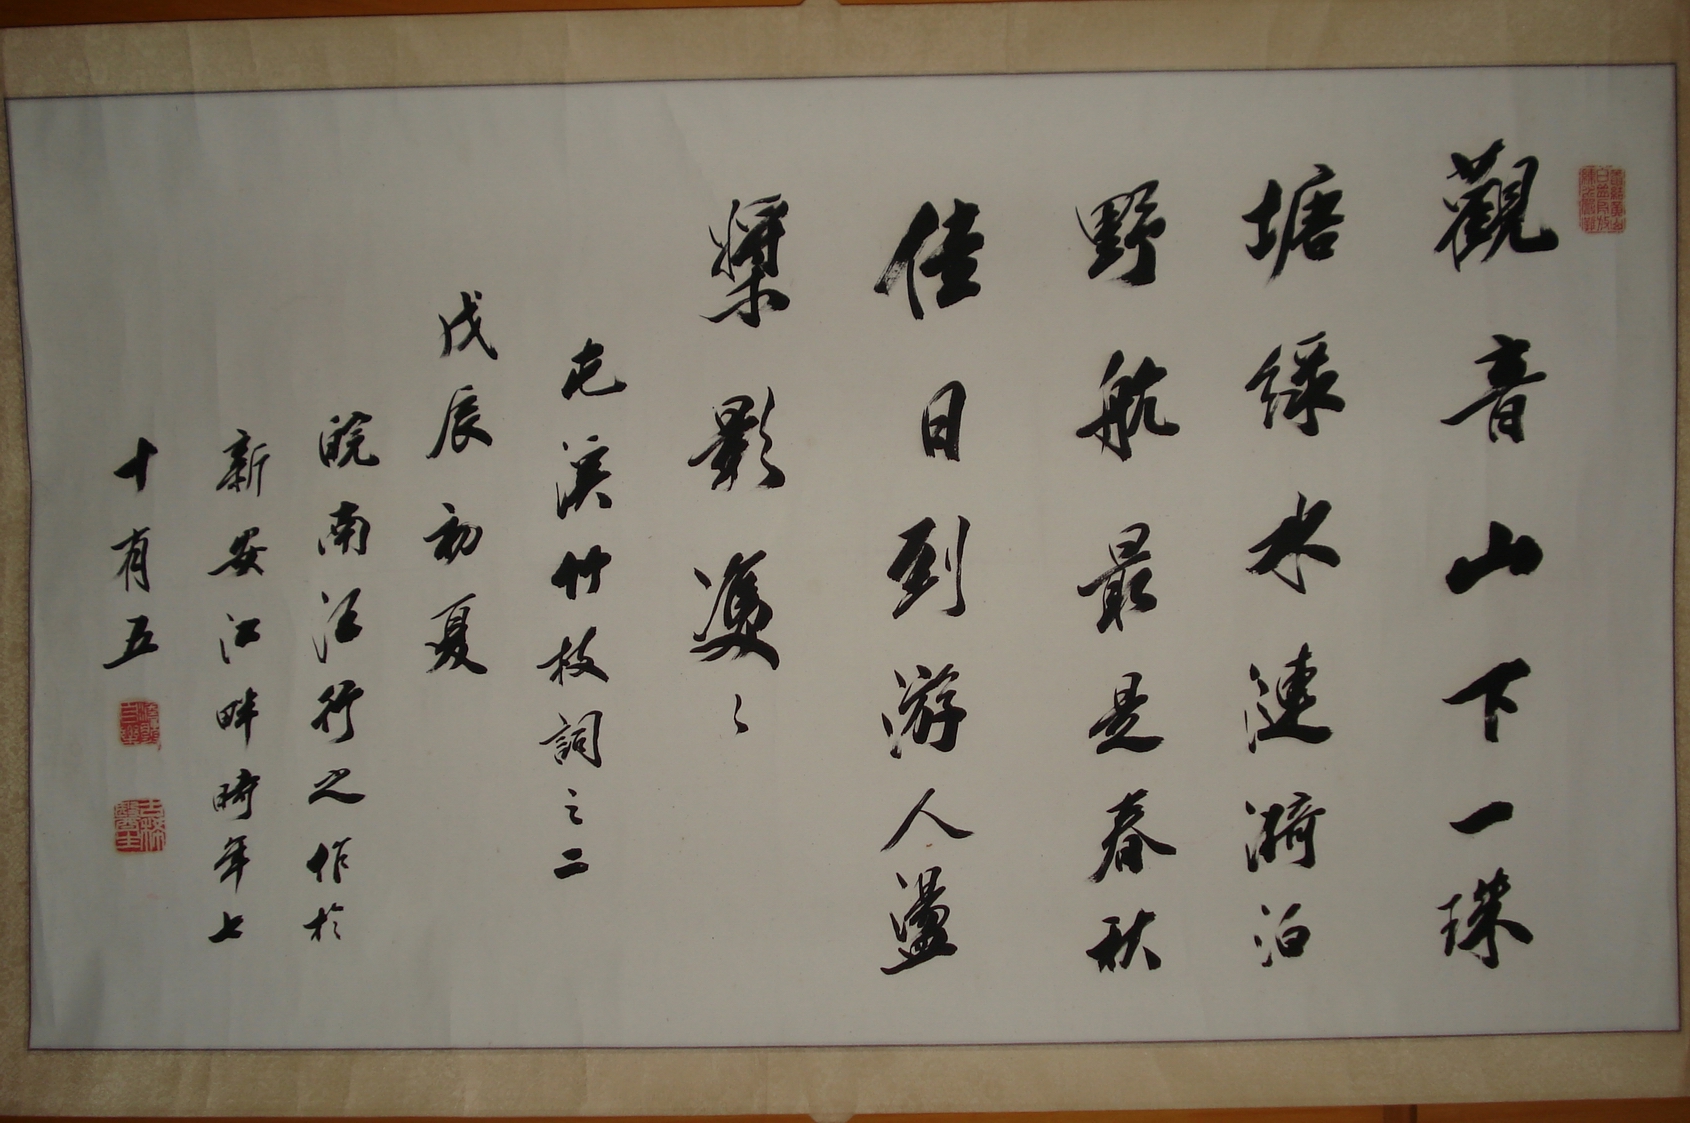 觀音山下一珠
塘綠水漣漪泊
野航最是春秋
佳日到游人盪
槳影雙〻
屯溪竹枝詞之二
戊辰初夏
皖南汪行之作於
新安江畔時年七
十有五